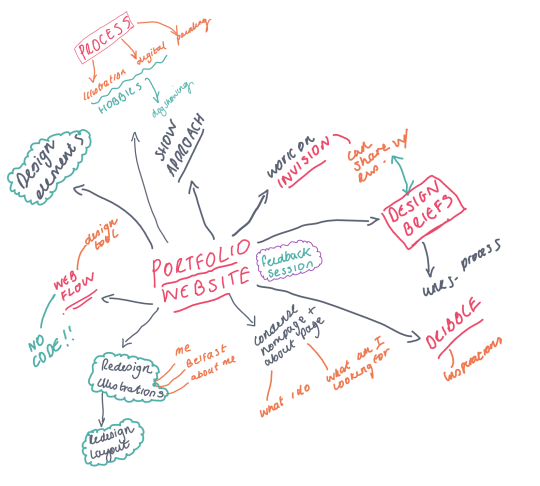 PROCESS
painting
digital
illustration
HOBBIES
dog showing
Design
elements
SHOW
APPROACH
WORK ON
INVISION
can
share w/
DESIGN
BRIEFS
process
PORTFOLIO
WEBSITE
feedback
session
design
tool
WEB
FLOW
NO
CODE!!
condense
about page
what I do
what am I
looking for
DRIBBLE
inspirations
Redesign
Illustrations
me
Belfast
about me
Redesign
layout